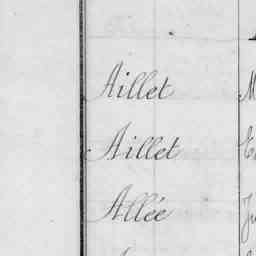 Aillet
Aillet
Allée